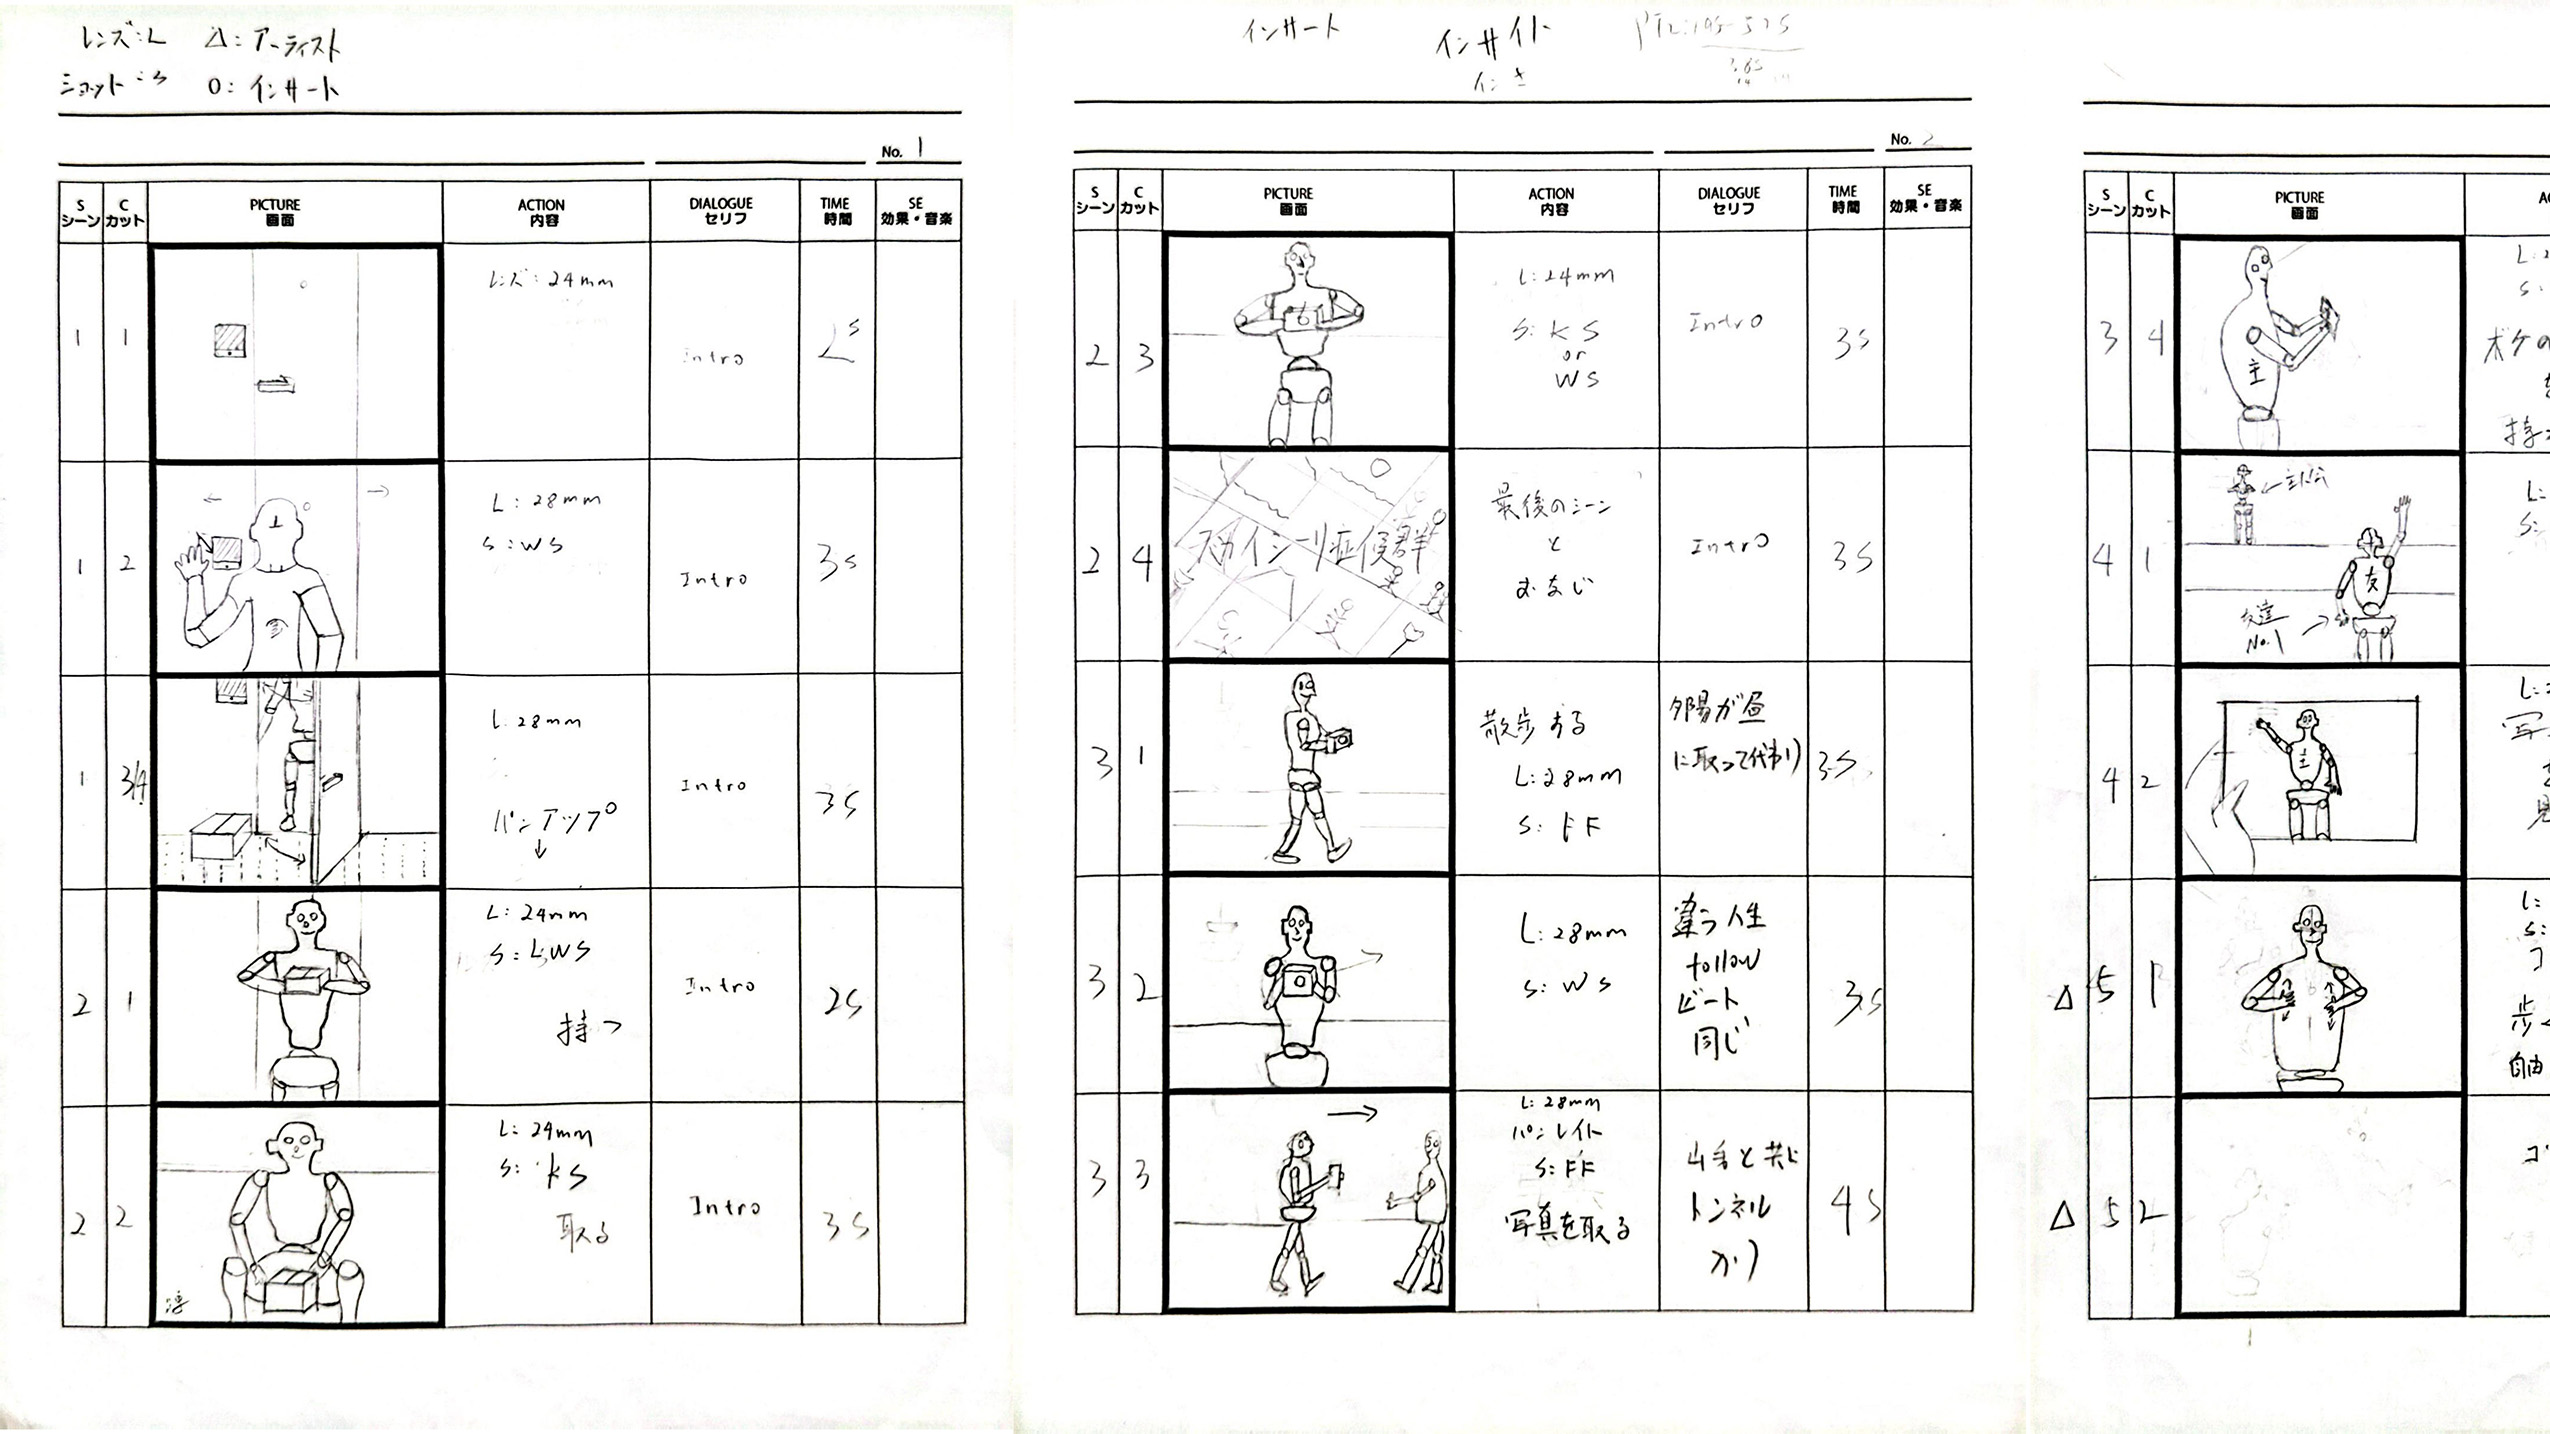 レンズ:L △:アーティスト
ショット:S O:インサート
No. 1
S シーン
C カット
PICTURE 画面
ACTION 内容
DIALOGUE セリフ
TIME 時間
SE 効果・音楽
1 1
レンズ:24mm
Intro
1 2
L:28mm
S:WS
Intro
3s
1 3/4
L:28mm
パンアップ
↓
Intro
3s
2 1
L:24mm
S:LWS
持つ
Intro
2s
2 2
L:24mm
S:KS
取る
Intro
3s
インサート
インサイト
No. 2
S シーン
C カット
PICTURE 画面
ACTION 内容
DIALOGUE セリフ
TIME 時間
SE 効果・音楽
2 3
L:24mm
S:KS
or
WS
Intro
3s
2 4
スカイシーリ症候群
最後のシーン
と
おなじ
Intro
3s
3 1
散歩する
L:28mm
S:FF
夕陽が昼
に取って代わり
3s
3 2
L:28mm
S:WS
違う人生
follow
ビート
同じ
3s
3 3
→
L:28mm
パンレイト
S:FF
写真を取る
山手と共に
トンネル
4s
S シーン
C カット
PICTURE 画面
3 4
主
ボケの
4 1
友
友達
No.1
4 2
主
L:
写
見
△ 5 1
L:
S:
歩
自由
△ 5 2